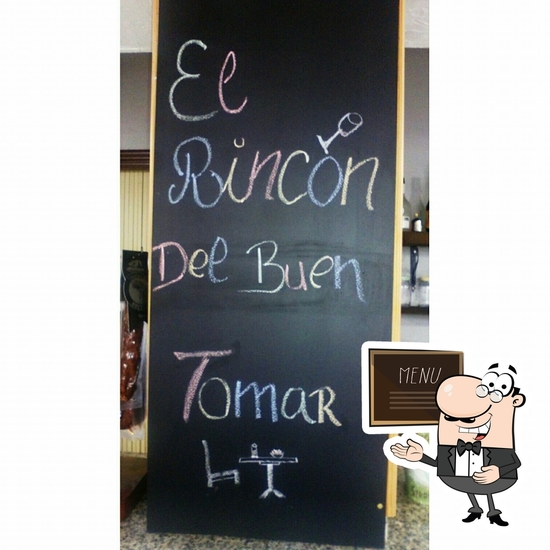 El
Rincón
Del Buen
Tomar
MENU